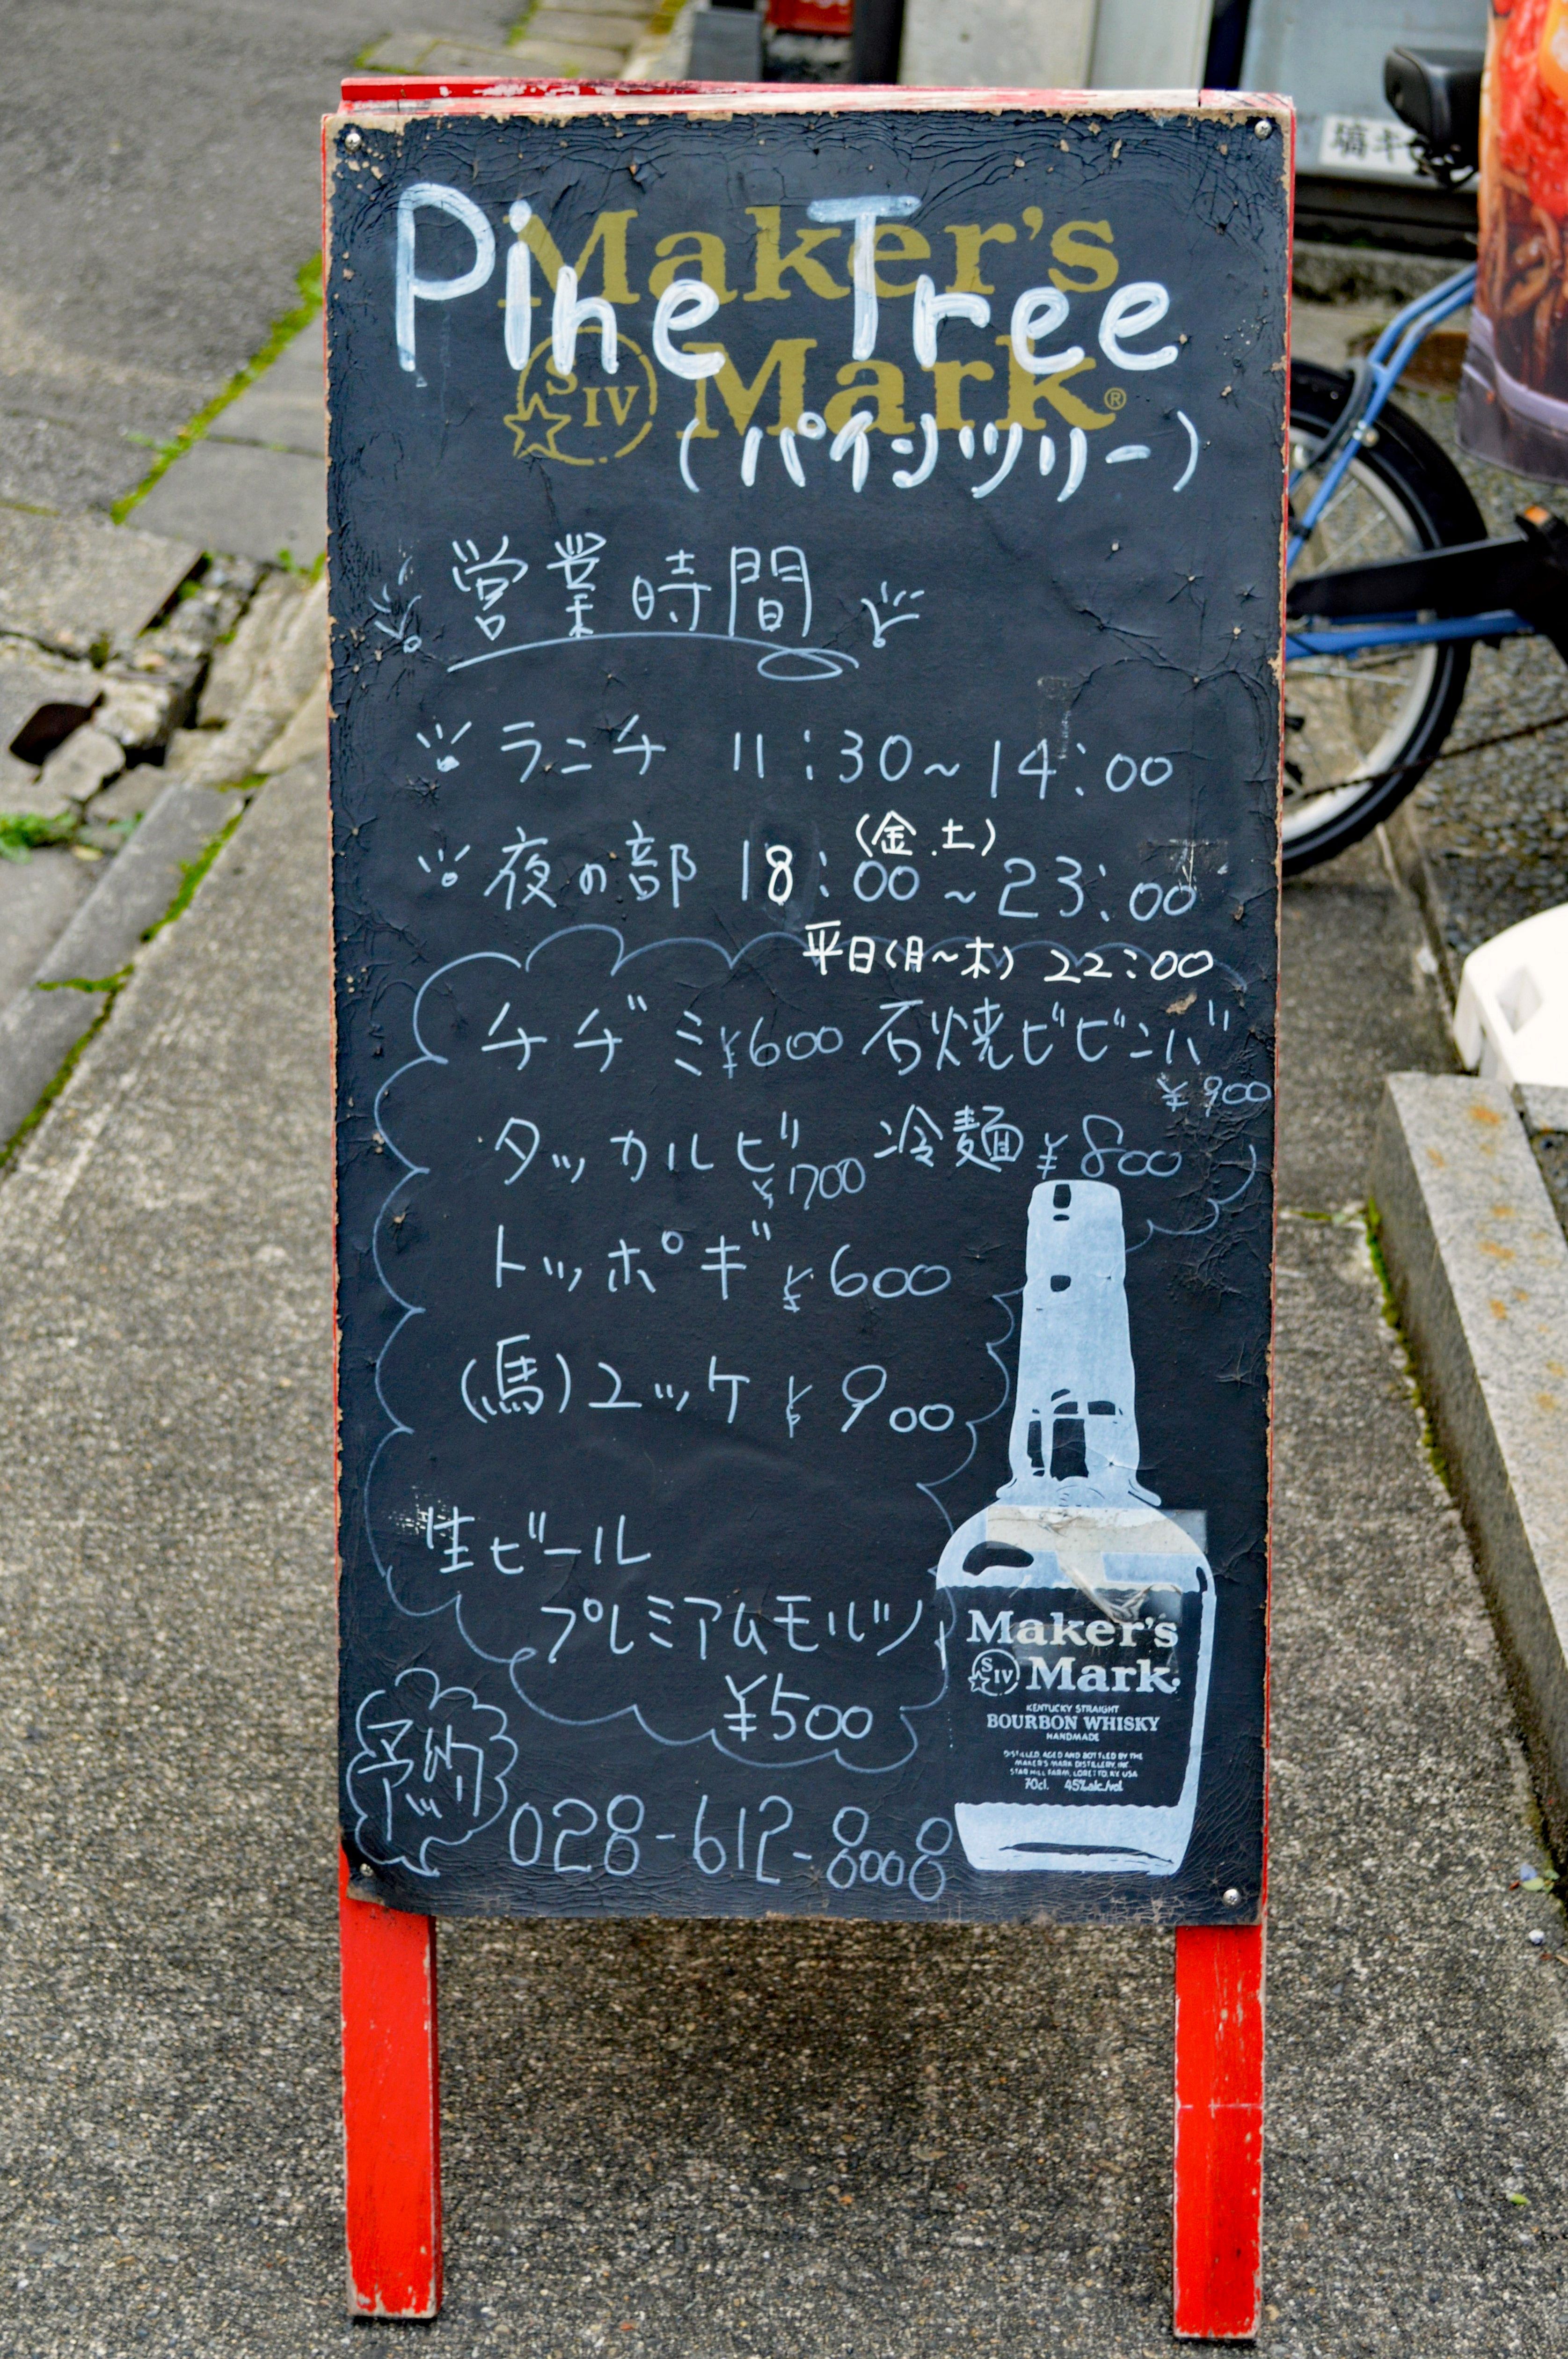 Maker's
Mark®
S IV
Pine Tree
(パインツリー)
営業時間
ランチ 11:30~14:00
(金.土)
夜の部 18:00~23:00
平日(月~木) 22:00
チヂミ¥600 石焼ビビンバ
¥900
タッカルビ 冷麺¥800
¥700
トッポギ¥600
(馬)ユッケ¥900
生ビール
プレミアムモルツ
¥500
予約 028-612-8008
Maker's
S IV Mark
KENTUCKY STRAIGHT
BOURBON WHISKY
HANDMADE
DISTILLED, AGED AND BOTTLED BY THE
MAKER'S MARK DISTILLERY, INC.
STAR HILL FARM, LORETTO, KY. USA
70cl. 45%alc./vol.